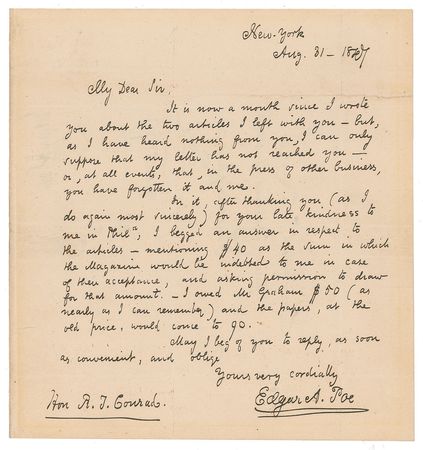 New-York
Aug. 31 - 1847
My Dear Sir,
It is now a month since I wrote
you about the two articles I left with you — but,
as I have heard nothing from you, I can only
suppose that my letter has not reached you —
or, at all events, that, in the press of other business,
you have forgotten it and me.
In it, after thanking you (as I
do again most sincerely) for your late kindness to
me in Phila, I begged an answer in respect to
the articles — mentioning $40 as the sum in which
the Magazine would be indebted to me in case
of their acceptance, and asking permission to draw
for that amount. — I owed Mr Graham $50 (as
nearly as I can remember) and the papers, at the
old price, would come to 90.
May I beg of you to reply, as soon
as convenient, and oblige
Yours very cordially
Edgar A. Poe
Hon R. T. Conrad.